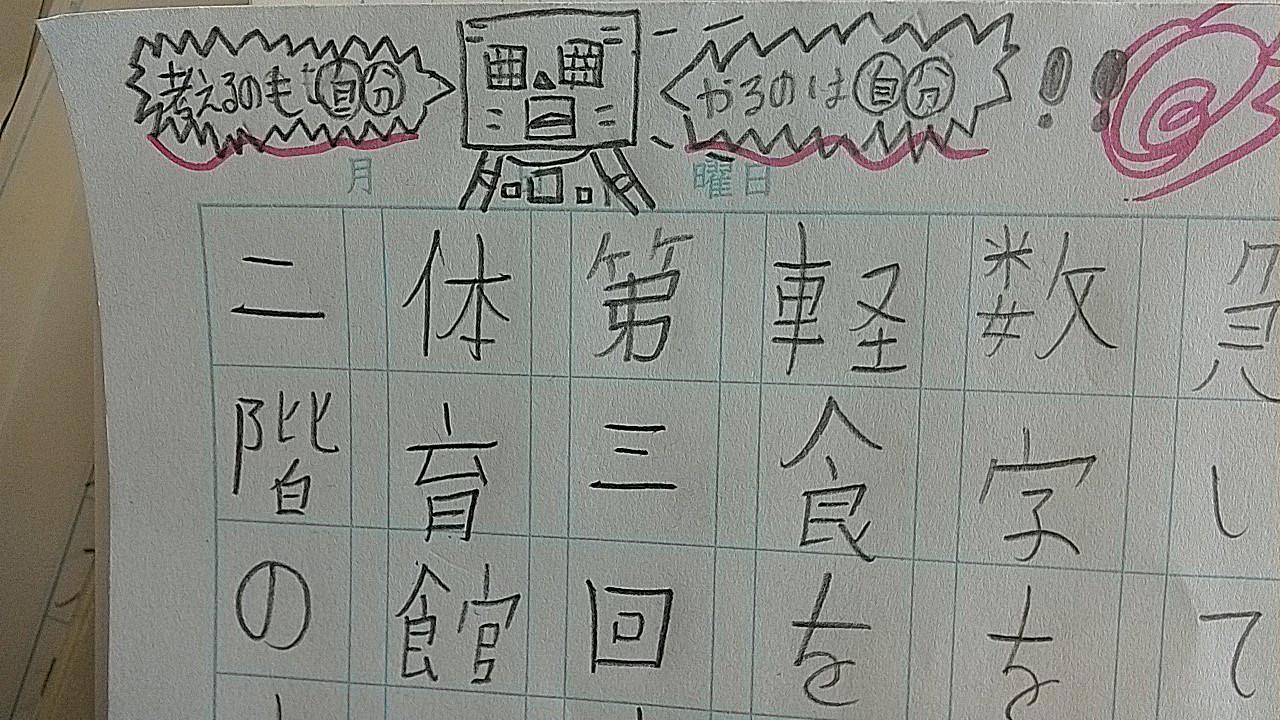 考えるのも自分
やるのは自分!!
月
曜日
して
数字を
軽食を
第三回
体育館
二階の